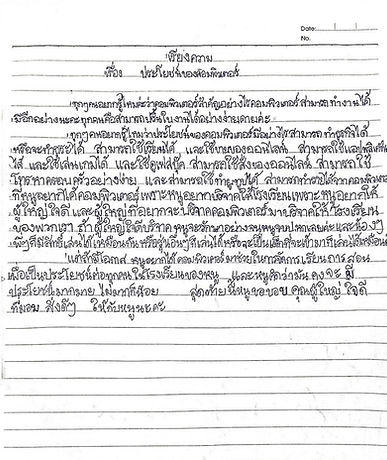 Date:
No.
เรียงความ
เรื่อง ประโยชน์ของคอมพิวเตอร์
ทุกๆคนอยากรู้ไหมค่ะว่าคอมพิวเตอร์สำคัญอย่างไรคอมพิวเตอร์ สามารถทำงานได้
มีอีกอย่างนะคะทุกคนคือสามารถปริ้นใบงานได้อย่างง่ายดายค่ะ
ทุกๆคนอยากรู้ไหมว่าประโยชน์ของคอมพิวเตอร์มีอย่างไรสามารถทำธุรกิจได้
หรือจะทำธุระได้ สามารถใช้เรียนได้ และใช้ขายของออนไลน์ สามารถใช้
ได้ และใช้เล่นเกมได้ และใช้ดูเฟสบุ๊ค สามารถใช้สั่งของออนไลน์ สามารถใช้
โทรหาครอบครัวอย่างง่าย และสามารถใช้ทำยูทูปได้ สามารถทำ
ที่หนูอยากได้คอมพิวเตอร์เพราะหนูอยากบริจาคให้โรงเรียนเพราะหนูอยากให้
ผู้ใหญ่ใจดี และผู้ใหญ่ที่อยากจะบริจาคคอมพิวเตอร์มาบริจาคให้โรงเรียน
ของพวกเรา ถ้าผู้ใหญ่ใจดีบริจาค หนูจะรักษาอย่าง และน้องๆ
พี่ๆก็มีสิทธิ์เล่นได้เหมือนกัน หรือรุ่นอื่นๆก็เล่นได้
แต่ถ้ามีโอกาส หนูอยากได้คอมพิวเตอร์มาช่วยในการจัดการเรียนการสอน
เพื่อเป็นประโยชน์ต่อทุกคนในโรงเรียนของหนู และหนูคิดว่ามันคงจะมี
ประโยชน์มากมาย ไม่มากก็น้อย สุดท้ายนี้หนูขอขอบคุณผู้ใหญ่ใจดี
ที่มอบ สิ่งดีๆ ให้กับหนูนะคะ